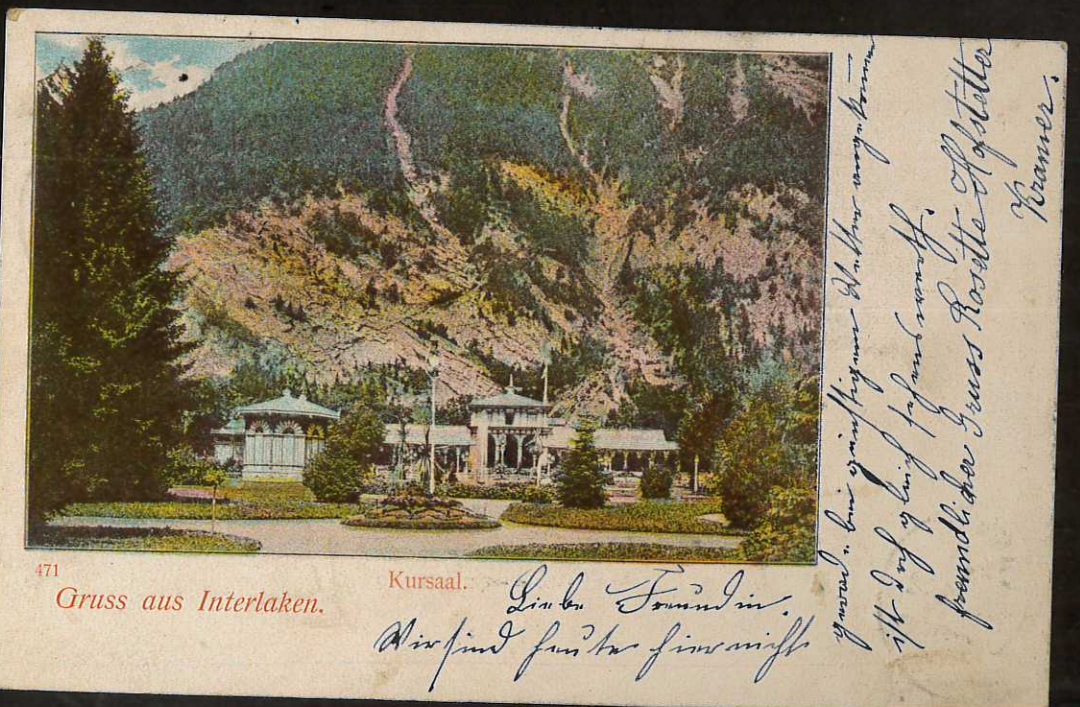 471
Kursaal.
Gruss aus Interlaken.
Liebe Freundin.
Wir sind heute hier nicht
bei günstigem Wetter angekommen
ist doch gleich sehenswerth.
freundlicher Gruss Rosette Hofstetter
Kramer.